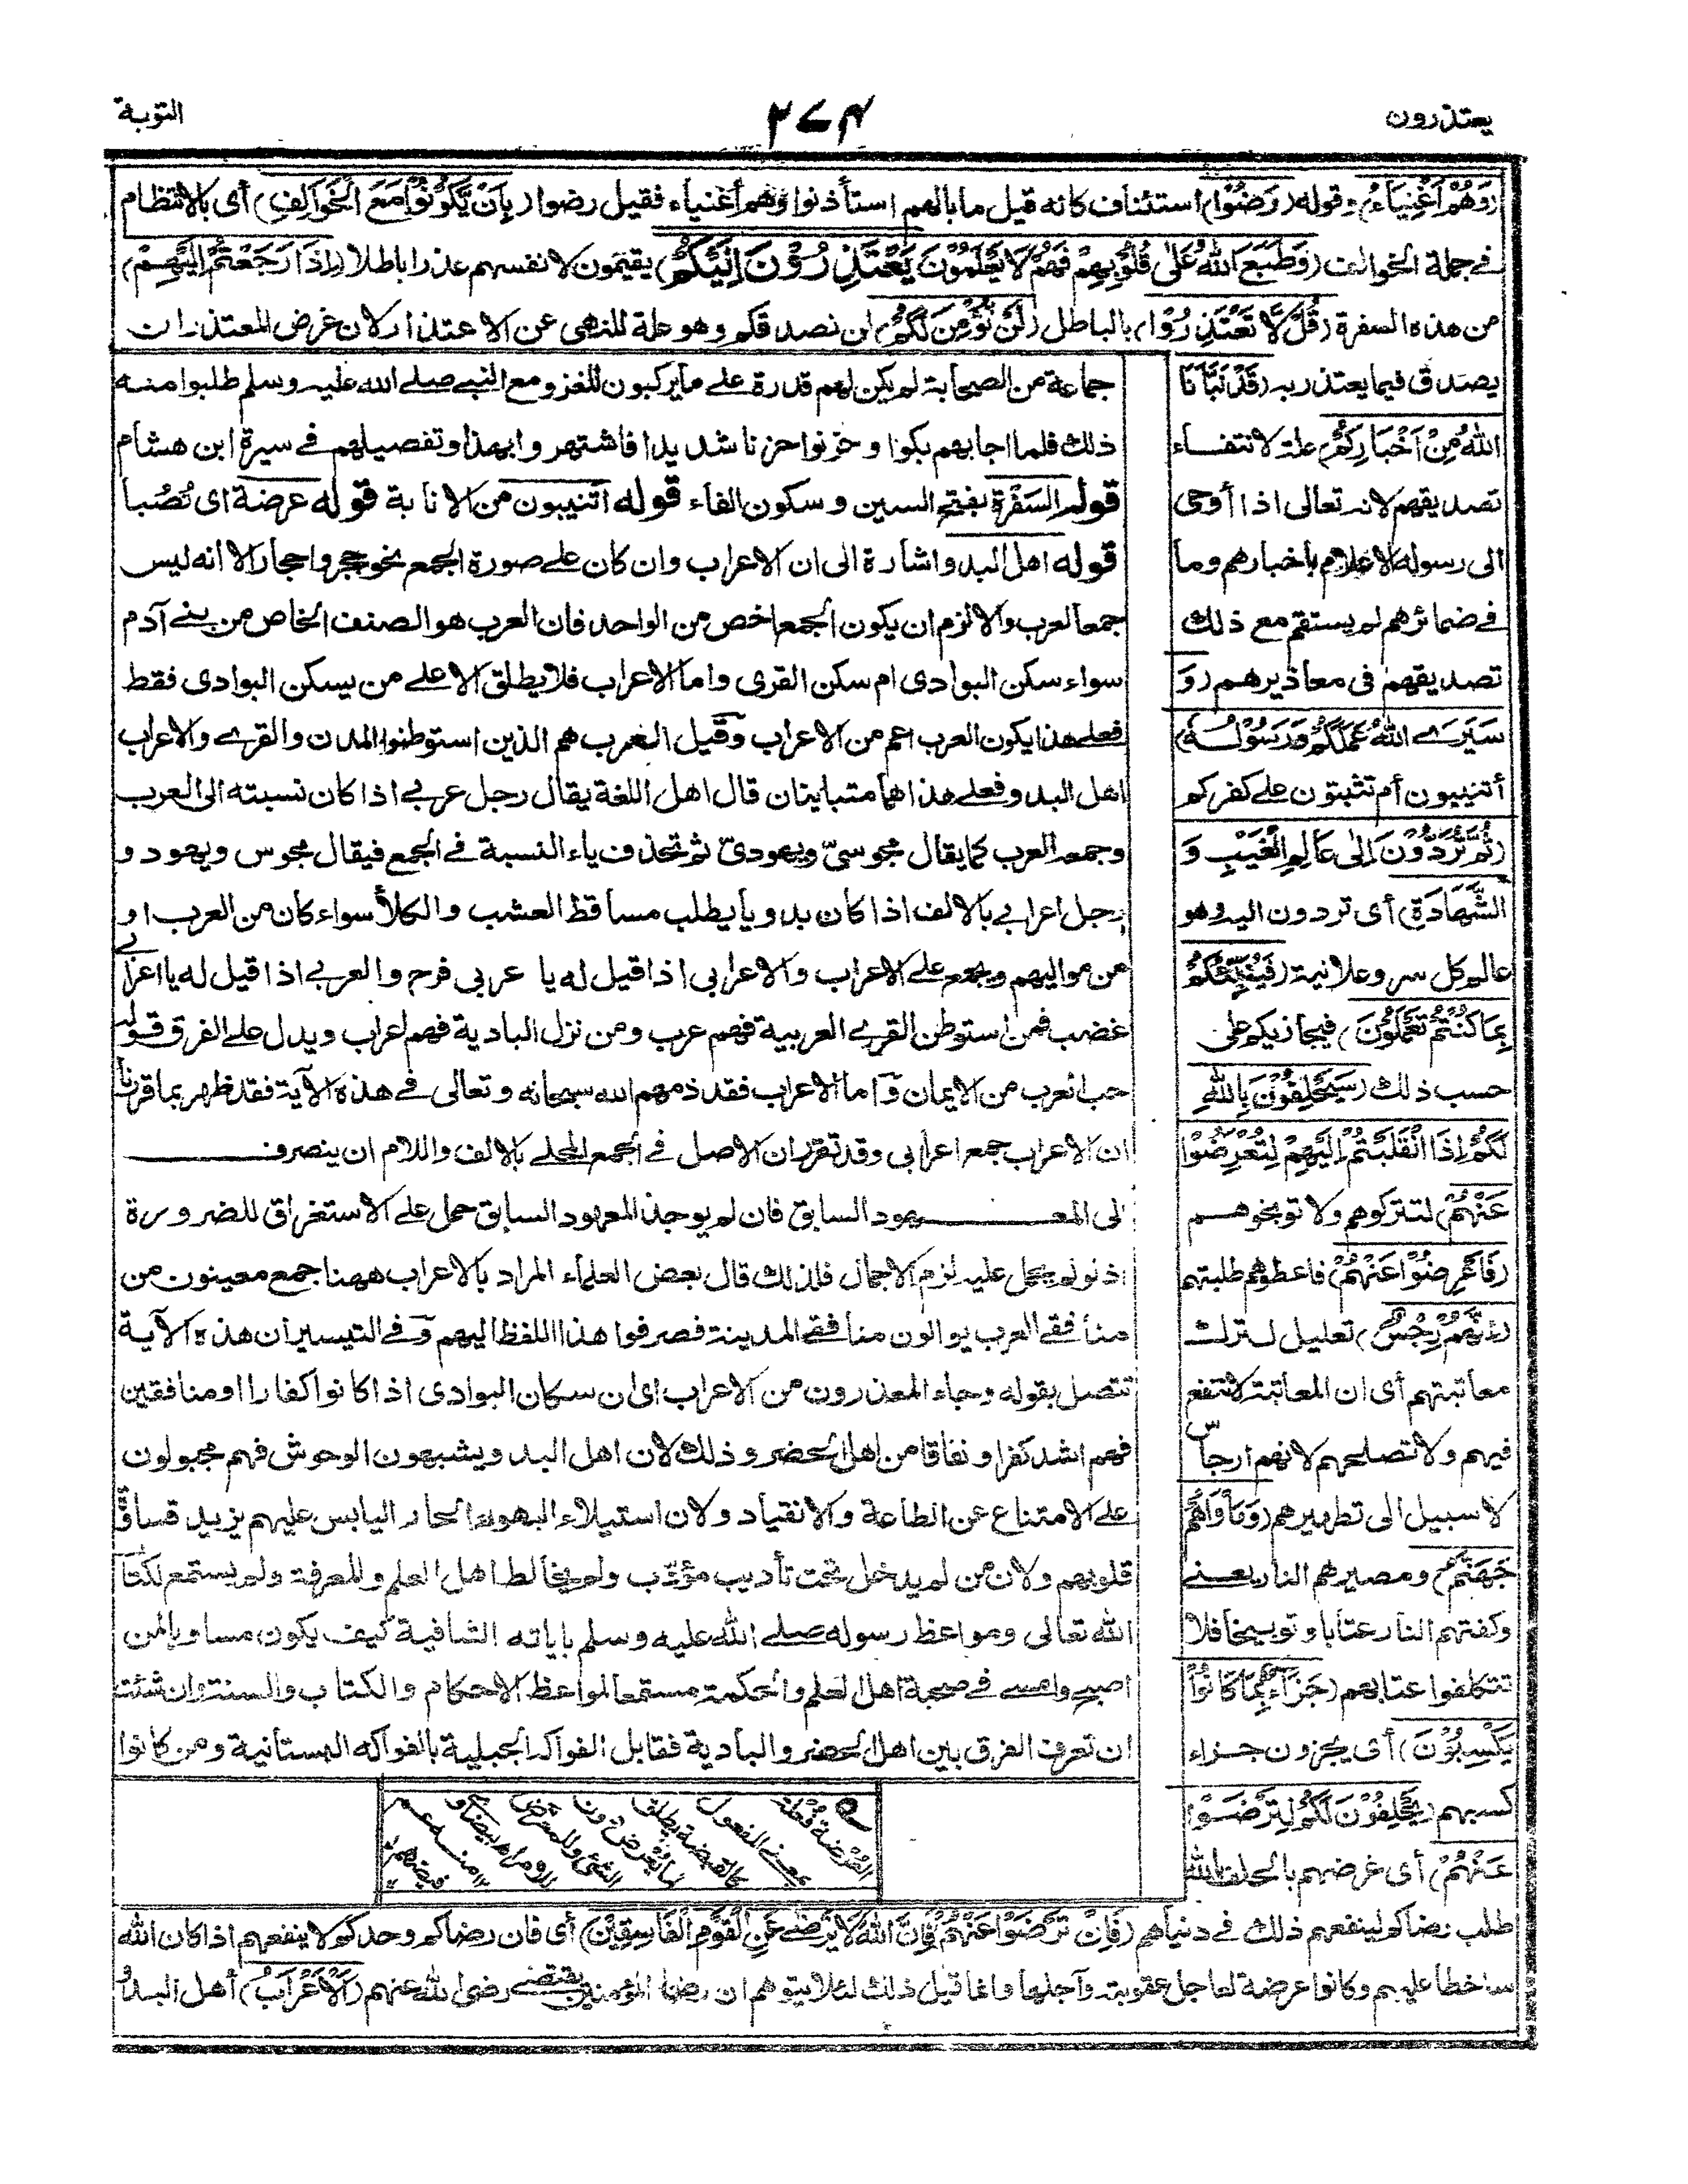 يعتذرون
٢٧٤
التوبة
(وَهُمْ اَغْنِيَاءُ) وقوله (رَضُوْا) استئناف كانه قيل ما بالهم استأذنوا وهم أغنياء فقيل رضوا (بِاَنْ يَّكُوْنُوْا مَعَ الْخَوَالِفِ) أى بالانتظام
فے جملة الخوالف (وَطَبَعَ اللّٰهُ عَلٰى قُلُوْبِهِمْ فَهُمْ لَا يَعْلَمُوْنَ يَعْتَذِرُوْنَ اِلَيْكُمْ) يقيمون لانفسهم عذرا باطلا (اِذَا رَجَعْتُمْ اِلَيْهِمْ)
من هذه السفرة (قُلْ لَّا تَعْتَذِرُوْا) بالباطل (لَنْ نُّؤْمِنَ لَكُمْ) لن نصدقكم وهو علة للنهى عن الاعتذار لان غرض المعتذر ان
يصدق فيما يعتذر به (قَدْ نَبَّاَنَا
اللّٰهُ مِنْ اَخْبَارِكُمْ) علة لانتفاء
تصديقهم لانه تعالى اذا أوحى
الى رسوله الاعلام بأخبارهم وما
فے ضمائرهم لم يستقم مع ذلك
تصديقهم فى معاذيرهم (وَ
سَيَرَى اللّٰهُ عَمَلَكُمْ وَرَسُوْلُهٗ)
أتنيبون أم تثبتون علے كفركم
(ثُمَّ تُرَدُّوْنَ اِلٰى عَالِمِ الْغَيْبِ وَ
الشَّهَادَةِ) أى تردون اليه وهو
عالم كل سر وعلانية (فَيُنَبِّئُكُمْ
بِمَا كُنْتُمْ تَعْمَلُوْنَ) فيجازيكم على
حسب ذلك (سَيَحْلِفُوْنَ بِاللّٰهِ
لَكُمْ اِذَا انْقَلَبْتُمْ اِلَيْهِمْ لِتُعْرِضُوْا
عَنْهُمْ) لتتركوهم ولا توبخوهم
(فَاَعْرِضُوْا عَنْهُمْ) فاعطوهم طلبتهم
(اِنَّهُمْ رِجْسٌ) تعليل لترك
معاتبتهم أى ان المعاتبة لا تنفع
فيهم ولا تصلحهم لانهم ارجاس
لا سبيل الى تطهيرهم (وَمَاْوَاهُمْ
جَهَنَّمُ) ومصيرهم النار يعنے
وكفتهم النار عتابا وتوبيخا فلا
تتكلفوا عتابهم (جَزَآءً بِمَا كَانُوْا
يَكْسِبُوْنَ) أى يجزون جزاء
كسبهم (يَحْلِفُوْنَ لَكُمْ لِتَرْضَوْا
عَنْهُمْ) أى غرضهم بالحلف بالله
جماعة من الصحابة لم يكن لهم قدرة علے ما يركبون للغزو مع النبے صلے الله عليه وسلم طلبوا منه
ذلك فلما اجابهم بكوا وحزنوا حزنا شديدا فاشتهروا بهذا وتفصيلهم فے سيرة ابن هشام
قوله السَفْرَة بفتح السين وسكون الفاء قوله اتنيبون من الانابة قوله عرضة اى نُصُبا
قوله اهل البدو اشارة الى ان الاعراب وان كان علے صورة الجمع نحو حجر واحجار الا انه ليس
جمعا لعرب والا لزم ان يكون الجمع اخص من الواحد فان العرب هو الصنف الخاص من بنے آدم
سواء سكن البوادى ام سكن القرى واما الاعراب فلا يطلق الا علے من يسكن البوادى فقط
فعلے هذا يكون العرب اعم من الاعراب وقيل العرب هم الذين استوطنوا المدن والقرے والاعراب
اهل البدو فعلے هذا هما متباينان قال اهل اللغة يقال رجل عربے اذا كان نسبته الى العرب
وجمعه العرب كما يقال مجوسىّ ويهودىّ ثم تحذف ياء النسبة فے الجمع فيقال مجوس ويهود و
رجل اعرابے بالالف اذا كان بدويا يطلب مساقط العشب والكلأ سواء كان من العرب او
من مواليهم ويجمع علے الاعراب والاعرابى اذا قيل له يا عربى فرح والعربے اذا قيل له يا اعرابے
غضب فمن استوطن القرے العربية فهم عرب ومن نزل البادية فهم اعراب ويدل علے الفرق قوله
حب العرب من الايمان واما الاعراب فقد ذمهم الله سبحانه وتعالى فے هذه الآية فقد ظهر بما قررنا
ان الاعراب جمع اعرابى وقد تقرر ان الاصل فے الجمع المحلے بالالف واللام ان ينصرف
الى المعهود السابق فان لم يوجد المعهود السابق حمل علے الاستغراق للضرورة
اذ لو لم يحمل عليه لزم الاجمال فلذلك قال بعض العلماء المراد بالاعراب ههنا جمع معينون من
منافقے العرب يوالون منافقے المدينة فصرفوا هذا اللفظ اليهم وفے التيسير ان هذه الآية
تتصل بقوله وجاء المعذرون من الاعراب اى ان سكان البوادى اذا كانوا كفارا او منافقين
فهم اشد كفرا ونفاقا من اهل الحضر وذلك لان اهل البدو يشبهون الوحوش فهم مجبولون
علے الامتناع عن الطاعة والانقياد ولان استيلاء الهواء الحار اليابس عليهم يزيد قساوة
قلوبهم ولان من لم يدخل تحت تأديب مؤدّب ولم يخالط اهل العلم والمعرفة ولم يستمع لكتاب
الله تعالى ومواعظ رسوله صلے الله عليه وسلم باياته الشافية كيف يكون مساويا لمن
اصبح وامسے فے صحبة اهل العلم والحكمة مستمعا لمواعظ الاحكام والكتاب والسنة وان شئت
ان تعرف الفرق بين اهل الحضر والبادية فقابل الفواكه الجبلية بالفواكه البستانية ومن كانوا
بمعنے المفعول
كالقبضة يطلق
طلب رضاكم لينفعهم ذلك فے دنياهم (فَاِنْ تَرْضَوْا عَنْهُمْ فَاِنَّ اللّٰهَ لَا يَرْضٰى عَنِ الْقَوْمِ الْفَاسِقِيْنَ) أى فان رضاكم وحدكم لا ينفعهم اذا كان الله
ساخطا عليهم وكانوا عرضة لعاجل عقوبته وآجلها وانما قيل ذلك لئلا يتوهم ان رضا المؤمنين يقتضے رضى الله عنهم (اَلْاَعْرَابُ) أهل البدو